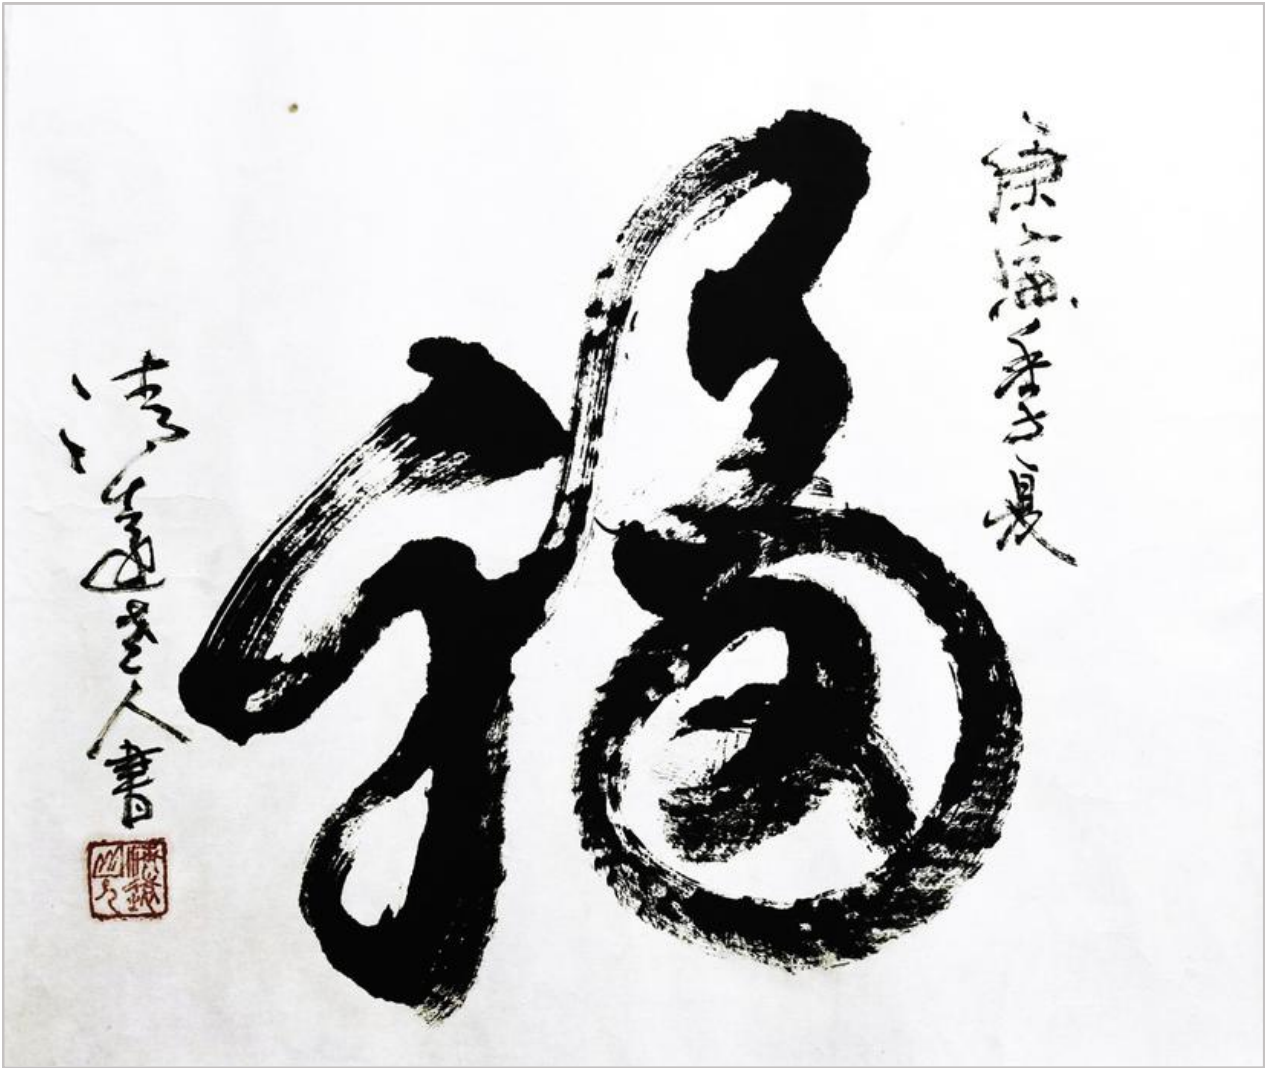 庚寅季夏
福
清道老人書